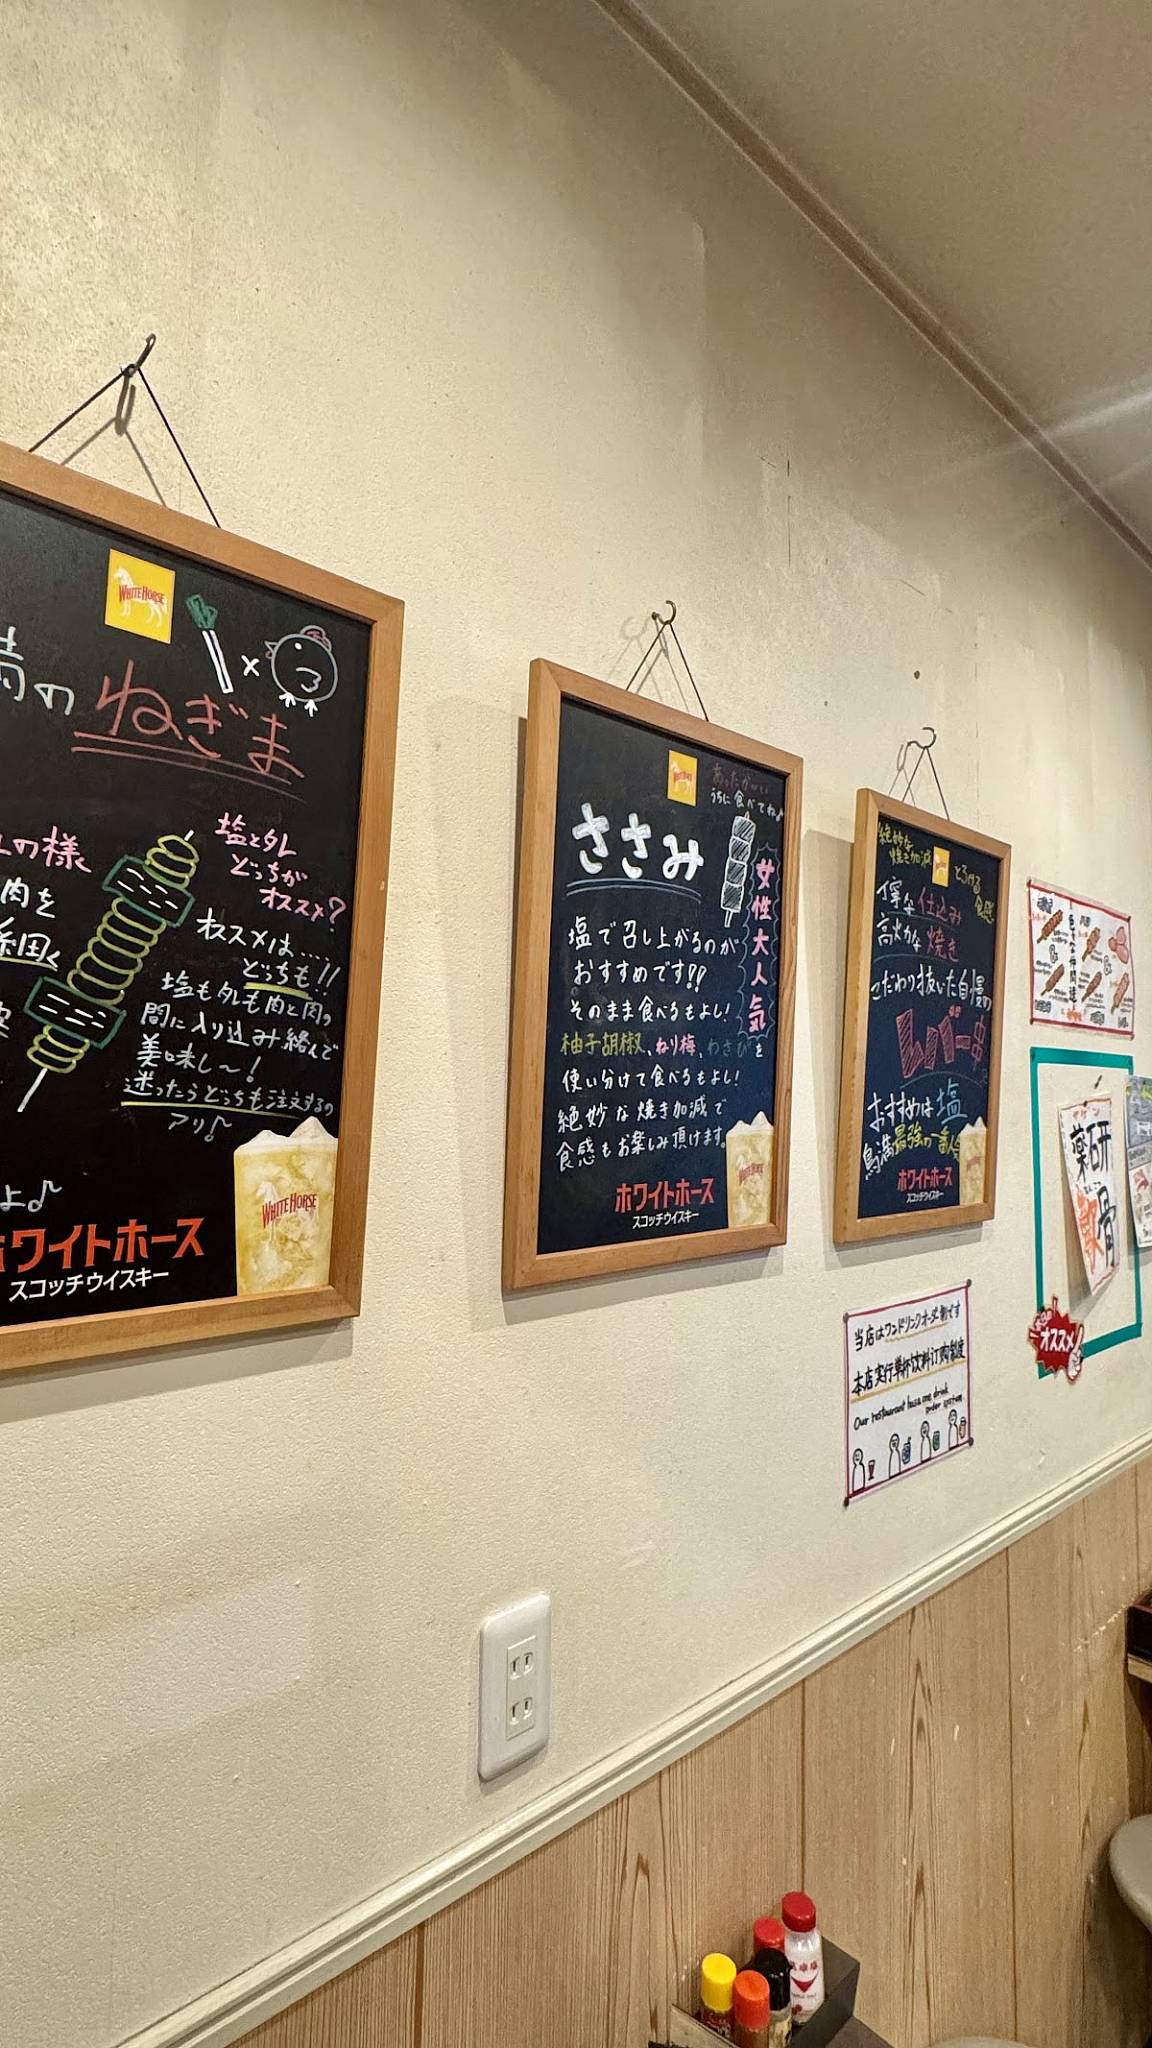 WHITE HORSE
の ねぎま
の様
肉を
塩とタレ
どっちが
オススメ?
オススメは....
どっちも!!
塩もタレも肉と肉の
間に入り込み絡んで
美味し〜!
迷ったらどっちも注文するの
アリ♪
よ♪
WHITE HORSE
ホワイトホース
スコッチウイスキー
WHITE HORSE
あったかい
うちに食べてね♪
ささみ
女性大人気
塩で召し上がるのが
おすすめです!!
そのまま食べるもよし!
柚子胡椒、ねり梅、わさびを
使い分けて食べるもよし!
絶妙な焼き加減で
食感もお楽しみ頂けます。
WHITE HORSE
ホワイトホース
スコッチウイスキー
絶妙な
焼き加減
とろける
食感
丁寧な仕込み
高火力な焼き
こだわり抜いた自慢の
レバー串
おすすめは塩
鳥満最強の一番人
ホワイトホース
スコッチウイスキー
当店はワンドリンクオーダー制です
本店実行单杯饮料订购制度
Our restaurant has a one drink
order system
薬研
軟骨
オススメ